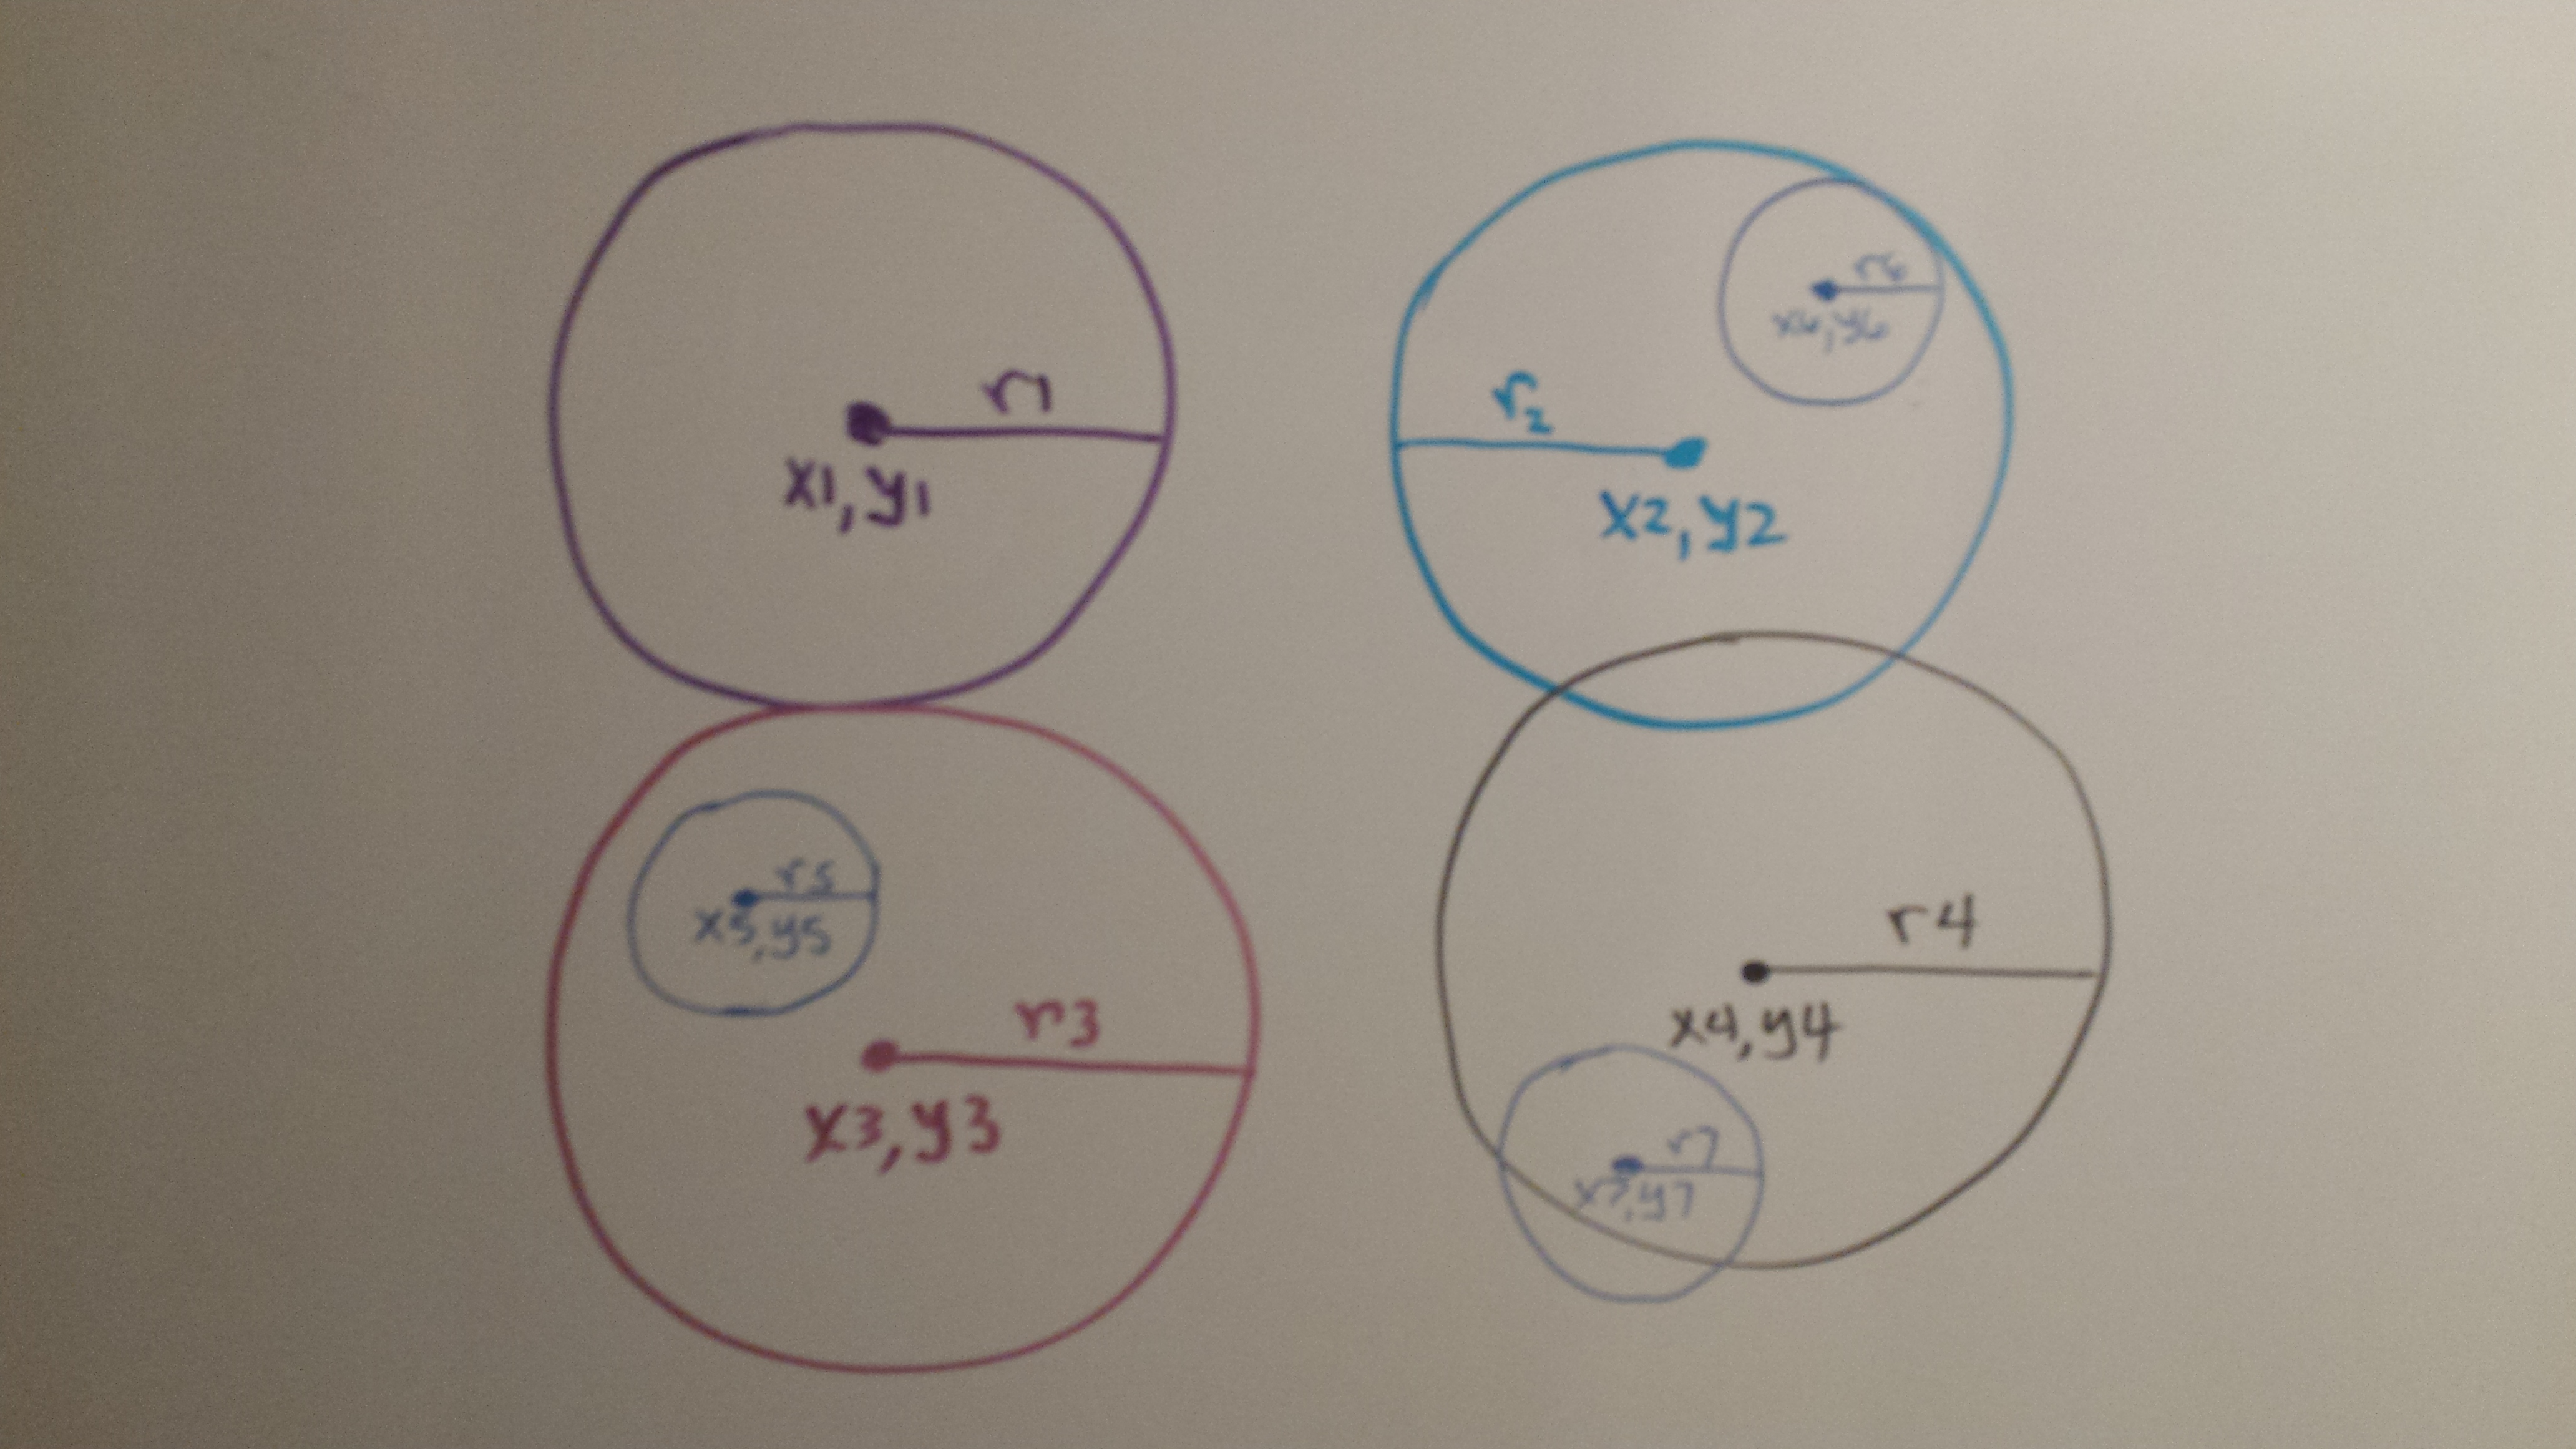 r1
x1,y1
r2
x2,y2
r6
x6,y6
r5
x5,y5
r3
x3,y3
r4
x4,y4
r7
x7,y7